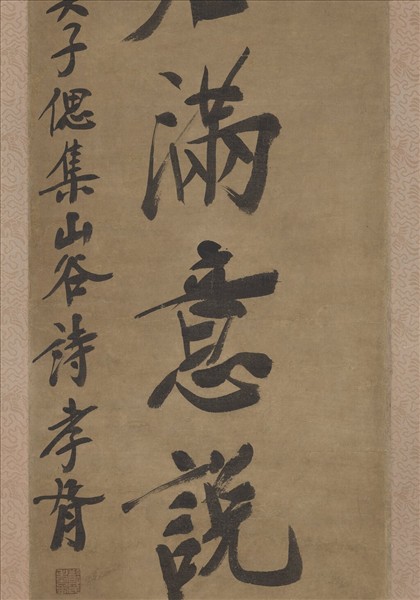 滿意說
子偲集山谷詩孝胥